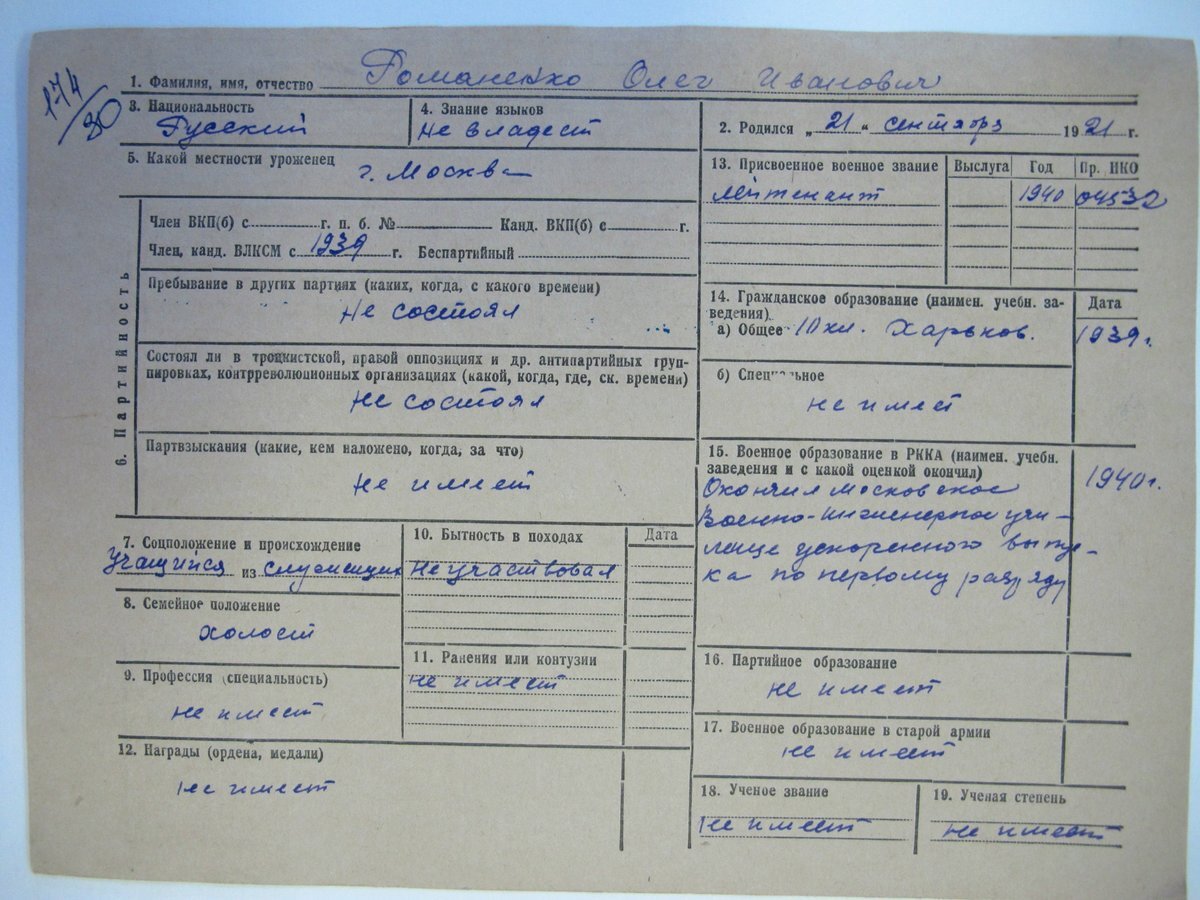 174/30
1. Фамилия, имя, отчество Романенко Олег Иванович
3. Национальность
Русский
4. Знание языков
Не владеет
2. Родился „21“ сентября 1921 г.
5. Какой местности уроженец
г. Москва
6. Партийность
Член ВКП(б) с г. п. б. № Канд. ВКП(б) с г.
Член, канд. ВЛКСМ с 1939 г. Беспартийный
Пребывание в других партиях (каких, когда, с какого времени)
Не состоял
Состоял ли в троцкистской, правой оппозициях и др. антипартийных груп-
пировках, контрреволюционных организациях (какой, когда, где, ск. времени)
Не состоял
Партвзыскания (какие, кем наложено, когда, за что)
Не имеет
7. Соцположение и происхождение
Учащийся из служащих
8. Семейное положение
холост
9. Профессия (специальность)
не имеет
10. Бытность в походах
Дата
Не участвовал
11. Ранения или контузии
Не имеет
12. Награды (ордена, медали)
Не имеет
13. Присвоенное военное звание Выслуга Год Пр. НКО
Лейтенант 1940 04532
14. Гражданское образование (наимен. учебн. за-
ведения)
Дата
а) Общее 10 кл. Харьков. 1939 г.
б) Специальное
не имеет
15. Военное образование в РККА (наимен. учебн.
заведения и с какой оценкой окончил)
1940 г.
Окончил Московское
Военно-Инженерное учи-
лище ускоренного выпус-
ка по первому разряду
16. Партийное образование
не имеет
17. Военное образование в старой армии
не имеет
18. Ученое звание
Не имеет
19. Ученая степень
Не имеет